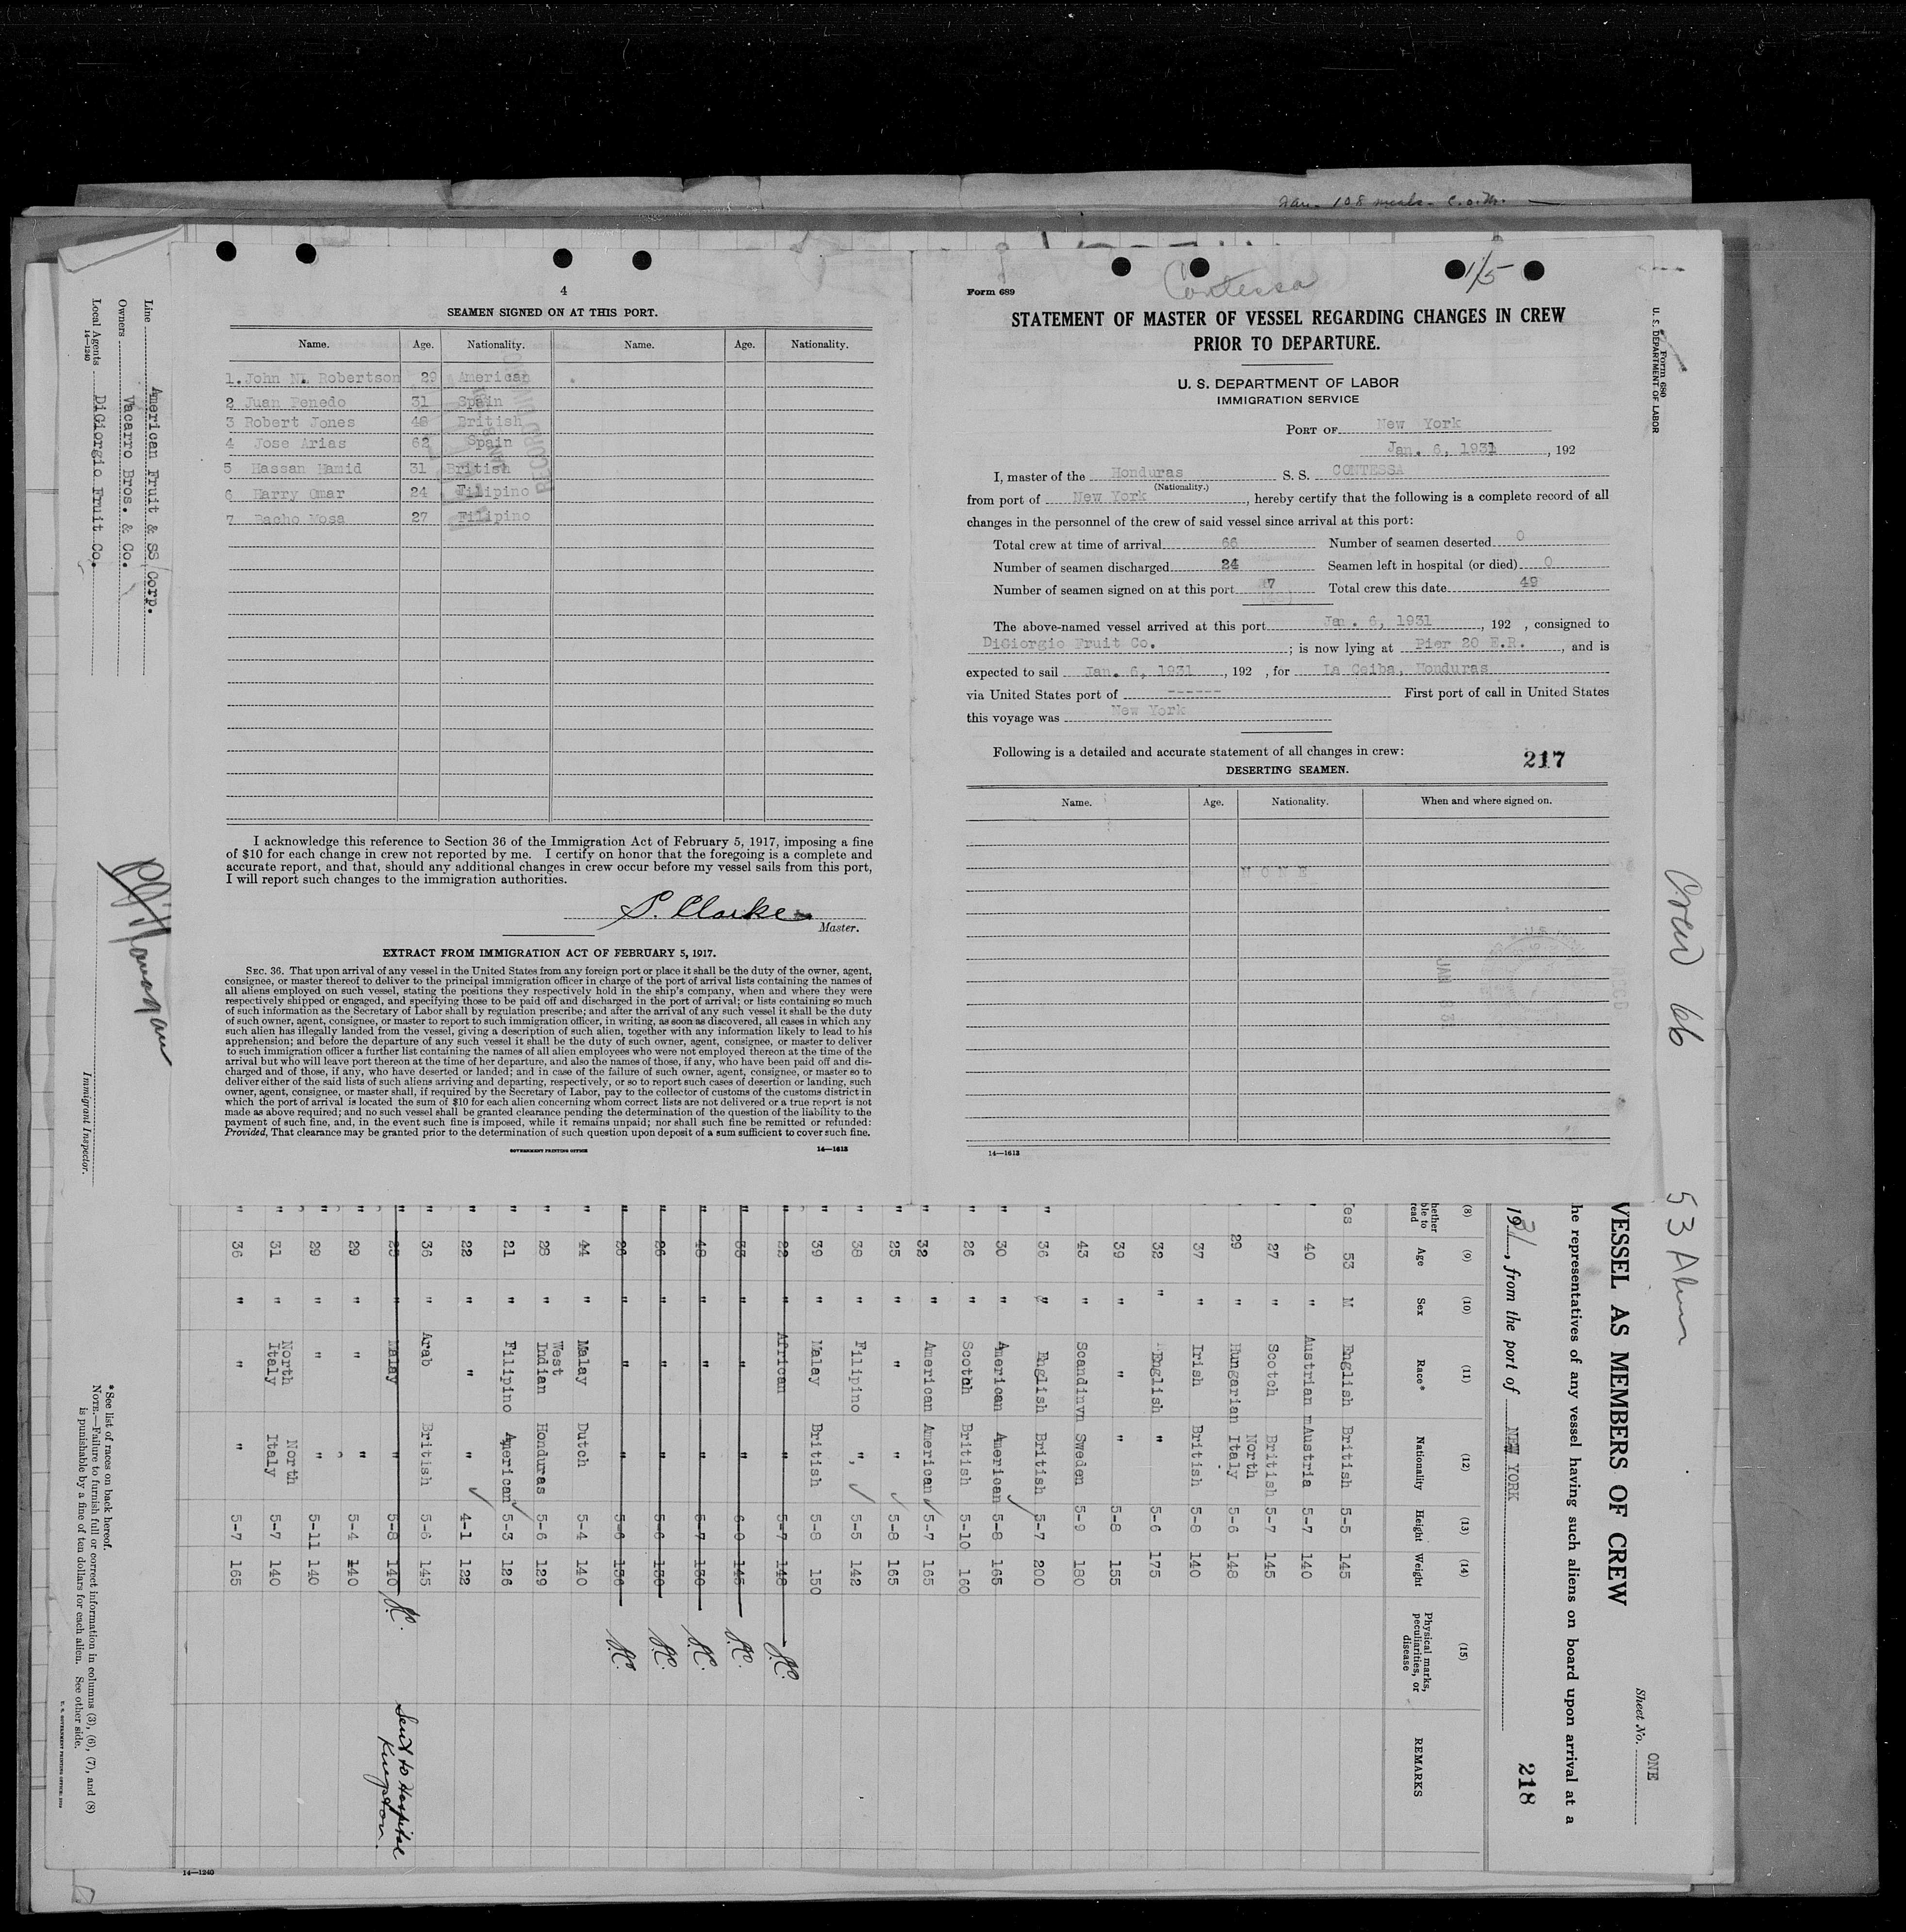 Jan. 108 meals. C.O.M.
4
SEAMEN SIGNED ON AT THIS PORT.
Name. Age. Nationality. Name. Age. Nationality.
1. John N. Robertson 29 American
2 Juan Penedo 31 Spain
3 Robert Jones 48 British
4 Jose Arias 62 Spain
5 Hassan Hamid 31 British
6 Harry Omar 24 Filipino
7 Bacho Mosa 27 Filipino
I acknowledge this reference to Section 36 of the Immigration Act of February 5, 1917, imposing a fine
of $10 for each change in crew not reported by me. I certify on honor that the foregoing is a complete and
accurate report, and that, should any additional changes in crew occur before my vessel sails from this port,
I will report such changes to the immigration authorities.
S. Clarke
Master.
EXTRACT FROM IMMIGRATION ACT OF FEBRUARY 5, 1917.
SEC. 36. That upon arrival of any vessel in the United States from any foreign port or place it shall be the duty of the owner, agent,
consignee, or master thereof to deliver to the principal immigration officer in charge of the port of arrival lists containing the names of
all aliens employed on such vessel, stating the positions they respectively hold in the ship's company, when and where they were
respectively shipped or engaged, and specifying those to be paid off and discharged in the port of arrival; or lists containing so much
of such information as the Secretary of Labor shall by regulation prescribe; and after the arrival of any such vessel it shall be the duty
of such owner, agent, consignee, or master to report to such immigration officer, in writing, as soon as discovered, all cases in which any
such alien has illegally landed from the vessel, giving a description of such alien, together with any information likely to lead to his
apprehension; and before the departure of any such vessel it shall be the duty of such owner, agent, consignee, or master to deliver
to such immigration officer a further list containing the names of all alien employees who were not employed thereon at the time of the
arrival but who will leave port thereon at the time of her departure, and also the names of those, if any, who have been paid off and dis-
charged and of those, if any, who have deserted or landed; and in case of the failure of such owner, agent, consignee, or master so to
deliver either of the said lists of such aliens arriving and departing, respectively, or so to report such cases of desertion or landing, such
owner, agent, consignee, or master shall, if required by the Secretary of Labor, pay to the collector of customs of the customs district in
which the port of arrival is located the sum of $10 for each alien concerning whom correct lists are not delivered or a true report is not
made as above required; and no such vessel shall be granted clearance pending the determination of the question of the liability to the
payment of such fine, and, in the event such fine is imposed, while it remains unpaid; nor shall such fine be remitted or refunded:
Provided, That clearance may be granted prior to the determination of such question upon deposit of a sum sufficient to cover such fine.
GOVERNMENT PRINTING OFFICE 14—1613
Contessa
1/5
Form 689
STATEMENT OF MASTER OF VESSEL REGARDING CHANGES IN CREW
PRIOR TO DEPARTURE.
U. S. DEPARTMENT OF LABOR
IMMIGRATION SERVICE
PORT OF New York
Jan. 6, 1931, 192
I, master of the Honduras S. S. CONTESSA
(Nationality.)
from port of New York, hereby certify that the following is a complete record of all
changes in the personnel of the crew of said vessel since arrival at this port:
Total crew at time of arrival 66 Number of seamen deserted 0
Number of seamen discharged 24 Seamen left in hospital (or died) 0
Number of seamen signed on at this port 7 Total crew this date 49
The above-named vessel arrived at this port Jan. 6, 1931, 192 , consigned to
DiGiorgio Fruit Co. ; is now lying at Pier 20 E.R., and is
expected to sail Jan. 6, 1931, 192 , for La Ceiba, Honduras
via United States port of ------ First port of call in United States
this voyage was New York
Following is a detailed and accurate statement of all changes in crew:
217
DESERTING SEAMEN.
Name. Age. Nationality. When and where signed on.
NONE
JAN 8 31
14—1613
Form 680
U. S. DEPARTMENT OF LABOR
Crew 66 53 Alien
Sheet No. ONE
VESSEL AS MEMBERS OF CREW
he representatives of any vessel having such aliens on board upon arrival at a
1931, from the port of NEW YORK
218
(8) (9) (10) (11) (12) (13) (14) (15)
hether ble to read Age Sex Race* Nationality Height Weight Physical marks, peculiarities, or disease REMARKS
es 53 M English British 5-5 145
" 40 " Austrian Austria 5-7 140
27 " Scotch British 5-7 145
29 " Hungarian North Italy 5-6 148
37 " Irish British 5-8 140
32 " English " 5-6 175
39 " " " 5-8 155
43 " Scandinvn Sweden 5-9 180
" 36 " English British 5-7 200
" 30 " American American 5-8 165
" 26 " Scotch British 5-10 160
" 32 " American American 5-7 165
" 25 " " " 5-8 165
" 38 " Filipino " 5-5 142
" 39 " Malay British 5-8 150
" 22 " African " 5-7 148
" 33 " " " 6-0 145
" 48 " " " 5-7 130
" 26 " " " 5-6 130
" 26 " " " 5-6 136
" 44 " Malay Dutch 5-4 140
" 28 " West Indian Honduras 5-6 129
" 21 " Filipino American 5-3 126
" 22 " " " 4-1 122
" 36 " Arab British 5-6 145
" 25 " Malay " 5-8 140 Sent to Hospital Kingston.
" 29 " " " 5-4 140
" 29 " " " 5-11 140
" 31 " North Italy North Italy 5-7 140
" 36 " " " 5-7 165
14—1240
Line American Fruit & SS Corp.
Owners Vacarro Bros. & Co.
Local Agents DiGiorgio Fruit Co.
14—1240
Immigrant Inspector.
*See list of races on back hereof.
NOTE.—Failure to furnish full or correct information in columns (3), (6), (7), and (8)
is punishable by a fine of ten dollars for each alien. See other side.
U. S. GOVERNMENT PRINTING OFFICE